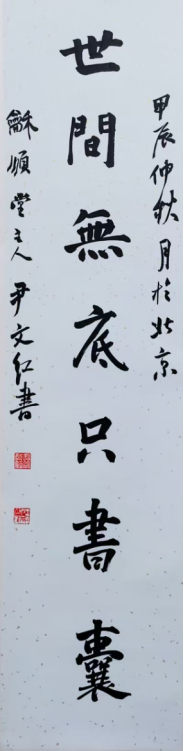 甲辰仲秋月於北京
世間無底只書囊
龢順堂主人尹文红書